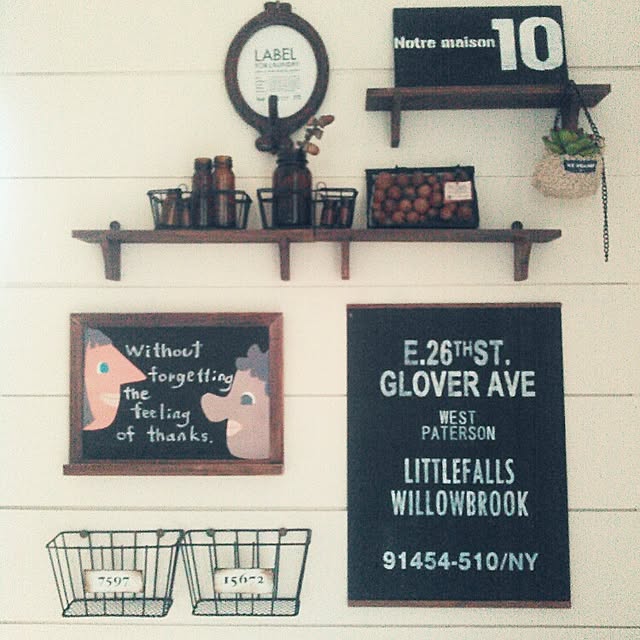 LABEL
FOR LAUNDRY
Notre maison 10
Without
forgetting
the
feeling
of thanks.
E.26THST.
GLOVER AVE
WEST
PATERSON
LITTLEFALLS
WILLOWBROOK
91454-510/NY
7597
15672